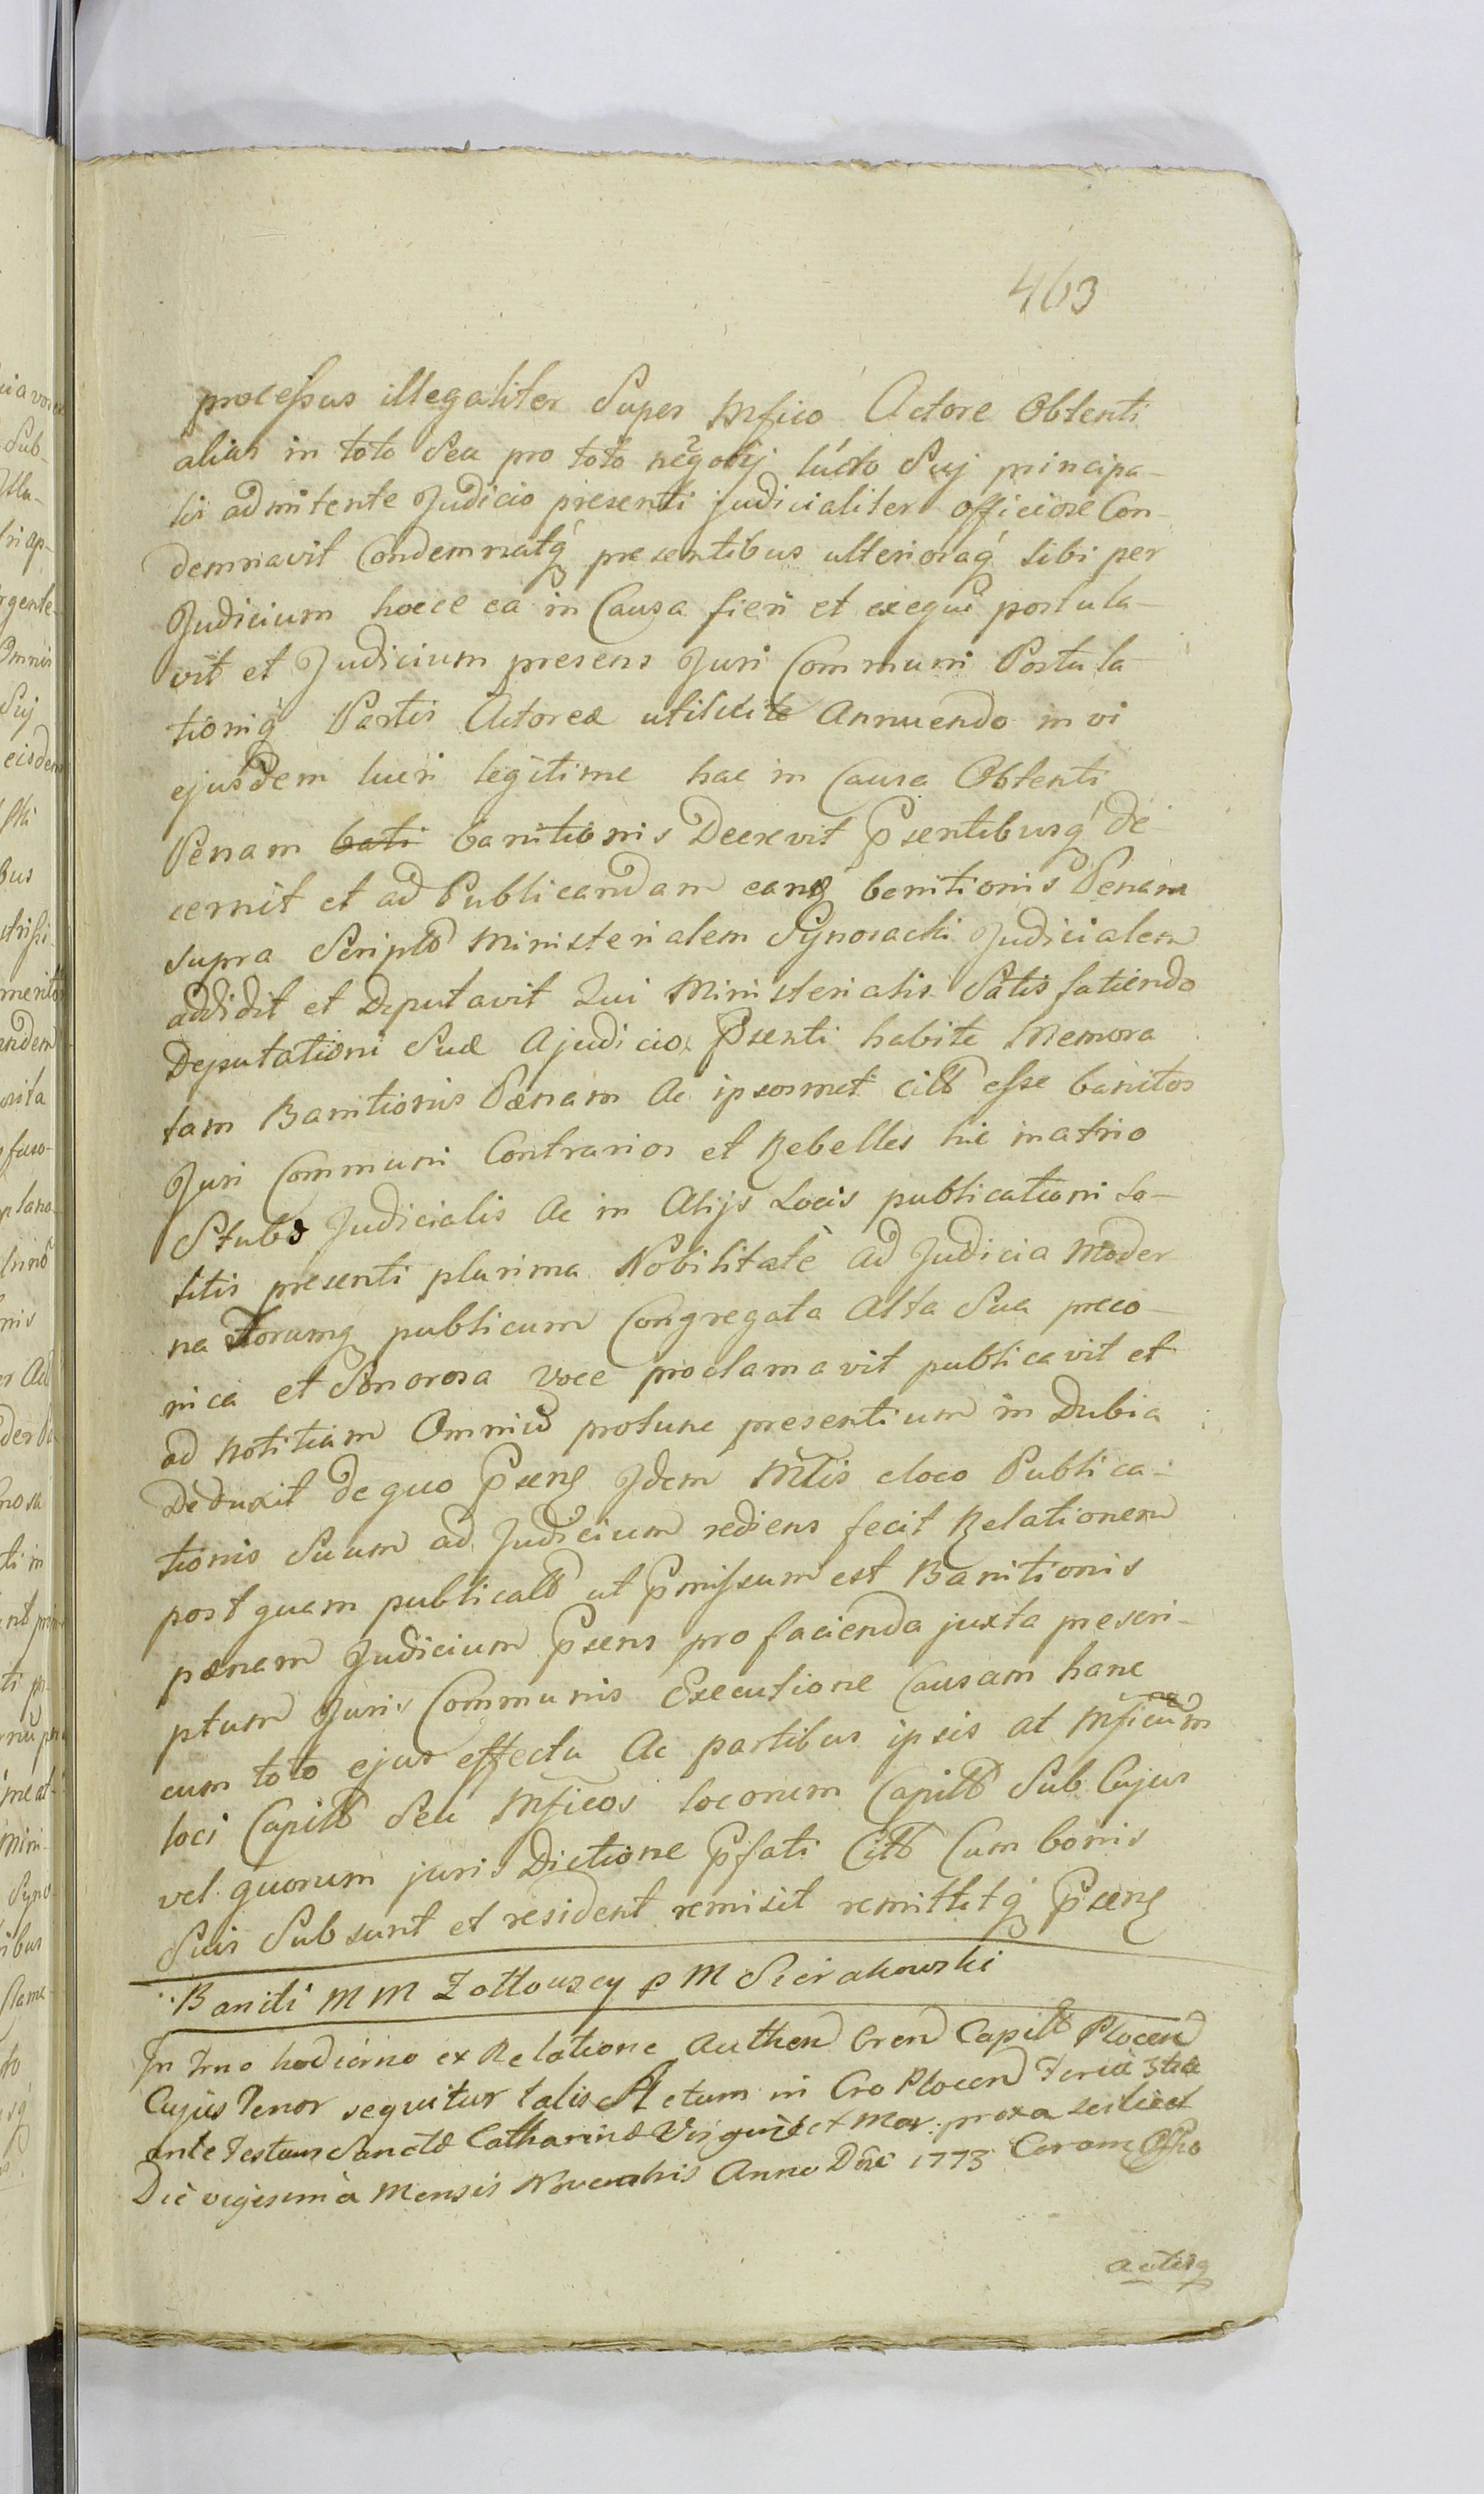 463
processus illegaliter Super Mfico Actore Obtenti
alias in toto Seu pro toto negotij lucro Suj principa-
lis admitente Judicio presenti judicialiter officiose Con-
demnavit Condemnatq presentibus ulterioraq sibi per
Judicium hocce ea in Causa fieri et exequi postula-
vit et Judicium presens Juri Communi Postula-
tioniq Partis Actoreæ utilitate Annuendo in vi
ejusdem lucri legitime hac in Causa Obtenti
Penam bati banitionis Decrevit Psentibusq de-
cernit et ad Publicandam eandq banitionis Penam
supra Script Ministerialem Synoracki Judicialem
addidit et Deputavit Qui Ministerialis Satis fatiendo
Deputationi Suæ A judicio Psenti habite Memora
tam Banitionis Pænam Ac ipsosmet Citt esse banitos
Juri Communi Contrarios et Rebelles hic in atrio
Stubæ Judicialis Ac in Alijs Locis publicationi so-
litis presenti plurima Nobilitate ad Judicia Moder
na Forumq publicum Congregata Alta Sua preco-
nica et Sonorosa voce proclamavit publicavit et
ad notitiam Omniu protunc presentium in Dubia
Deduxit de quo Psens Idem Mtis eloco Publica-
tionis Suum ad Judicium rediens fecit Relationem
post quam publicatt ut Pmissum est Banitionis
pænam Judicium Psens pro facienda juxta prescri-
ptum Juris Communis Executione Causam hanc
cum toto ejus effectu Ac partibus ipsis at Mficum
loci Capitt Seu Mficos locorum Capitt Sub Cujus
vel quorum juris Dictione Pfati Citt Cum bonis
Suis Subsunt et resident remisit remittitq Psens
Baniti M M Zottowscy p M Sierakowski
In Trno hodierno ex Relatione Authen Cren Capitt Plocen
Cujus Tenor sequitur talis Actum in Cro Plocen Feria 3tia
ante Festum Sanctæ Catharinæ Virginis et Mar: proxa scilicet
Die vigesima Mensis Novembris Anno Dni 1773 Coram Offo
actisq